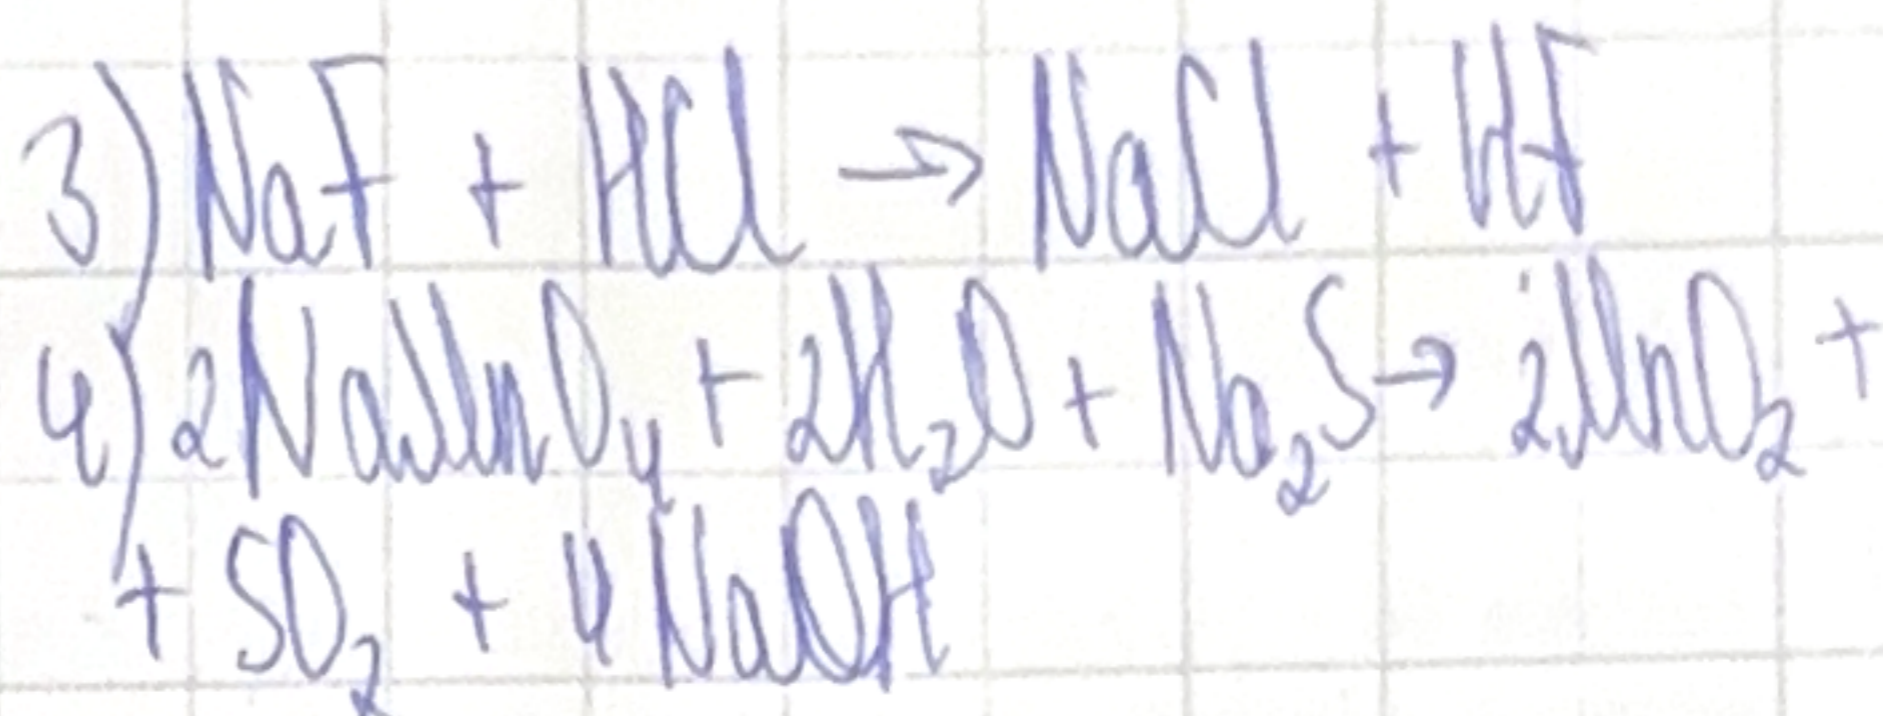 3) NaF + HCl → NaCl + HF
4) 2NaMnO₄ + 2H₂O + Na₂S → 2MnO₂ +
+ SO₂ + 4NaOH